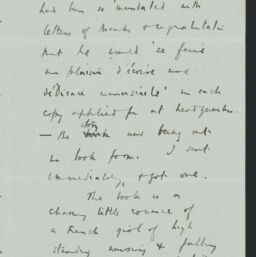 had been so inundated with
letters of thanks & congratulati
that he would 'se faire
un plaisir d'écrire une
dédicace manuscrite' in each
copy applied for at headquarters.
— The story was being out
in book form. I sent
immediately, & got one.
The book is a
charming little romance of
a French girl of high
standing nursing & falling